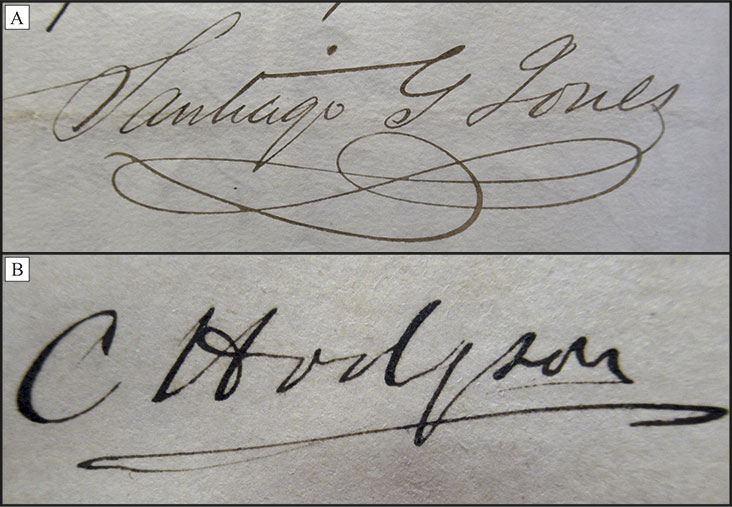 A
Santiago G Jones
B
C Hodgson